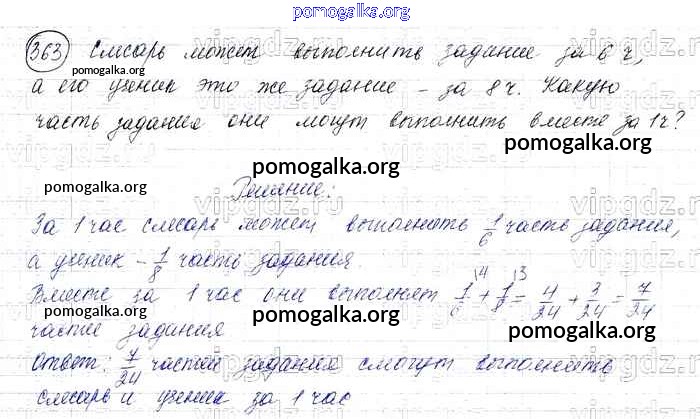 pomogalka.org
363 Слесарь может выполнить задание за 6 ч,
pomogalka.org
а его ученик это же задание – за 8 ч. Какую
часть задания они могут выполнить вместе за 1 ч?
pomogalka.org
pomogalka.org pomogalka.org
Решение:
vipgdz.ru
За 1 час слесарь может выполнить 1/6 часть задания,
а ученик – 1/8 часть задания.
pomogalka.org
Вместе за 1 час они выполнят 1/6 + 1/8 = 4/24 + 3/24 = 7/24
части задания pomogalka.org pomogalka.org
Ответ: 7/24 частей задания смогут выполнить
слесарь и ученик за 1 час
pomogalka.org